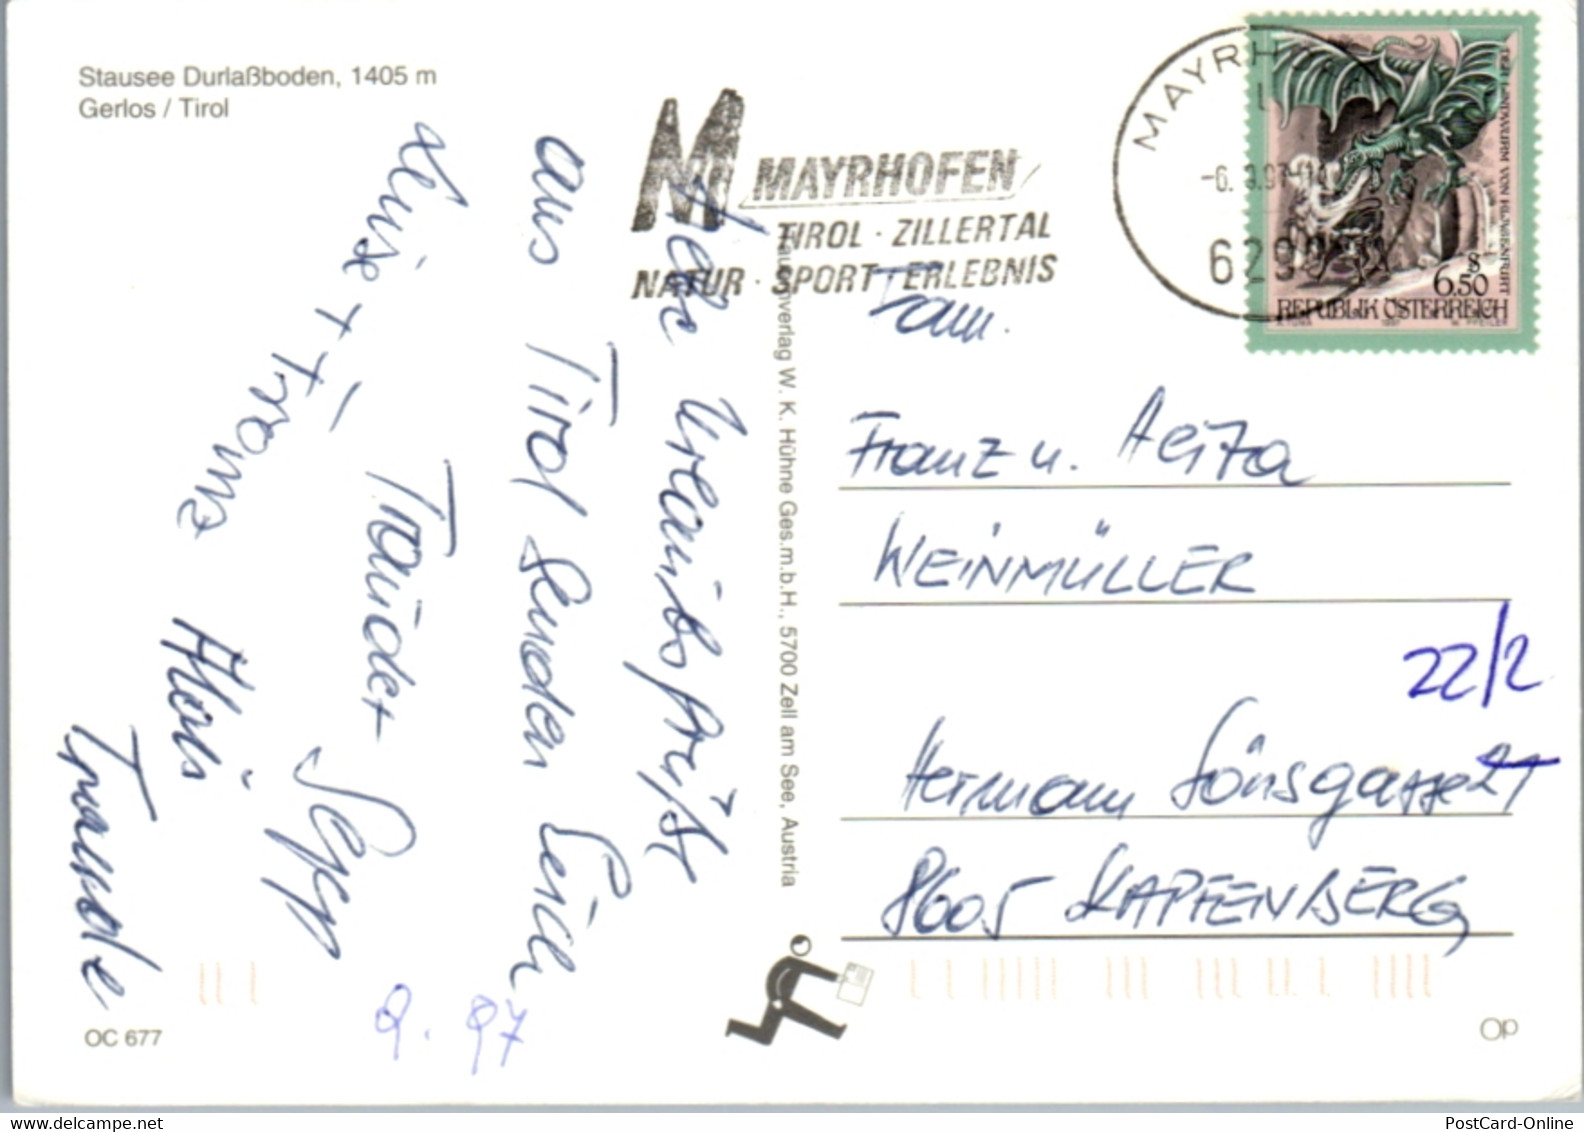 Stausee Durlaßboden, 1405 m
Gerlos / Tirol
Liebe Urlaubsgrüße
aus Tirol senden Euch
Traude + Sepp
Luise + Franz
Alois
Traudle
9. 97
OC 677
M MAYRHOFEN
TIROL · ZILLERTAL
NATUR · SPORT · ERLEBNIS
MAYRH
-6. 9.97-10
629
DER LINDWURM VON KLAGENFURT
S
6,50
REPUBLIK ÖSTERREICH
A. TUMA 1997 W. PFEILER
verlag W. K. Hühne Ges.m.b.H., 5700 Zell am See, Austria
Fam.
Franz u. Herta
WEINMÜLLER
22/2
Hermann Lönsgasse
8605 KAPFENBERG
Op
PostCard-Online